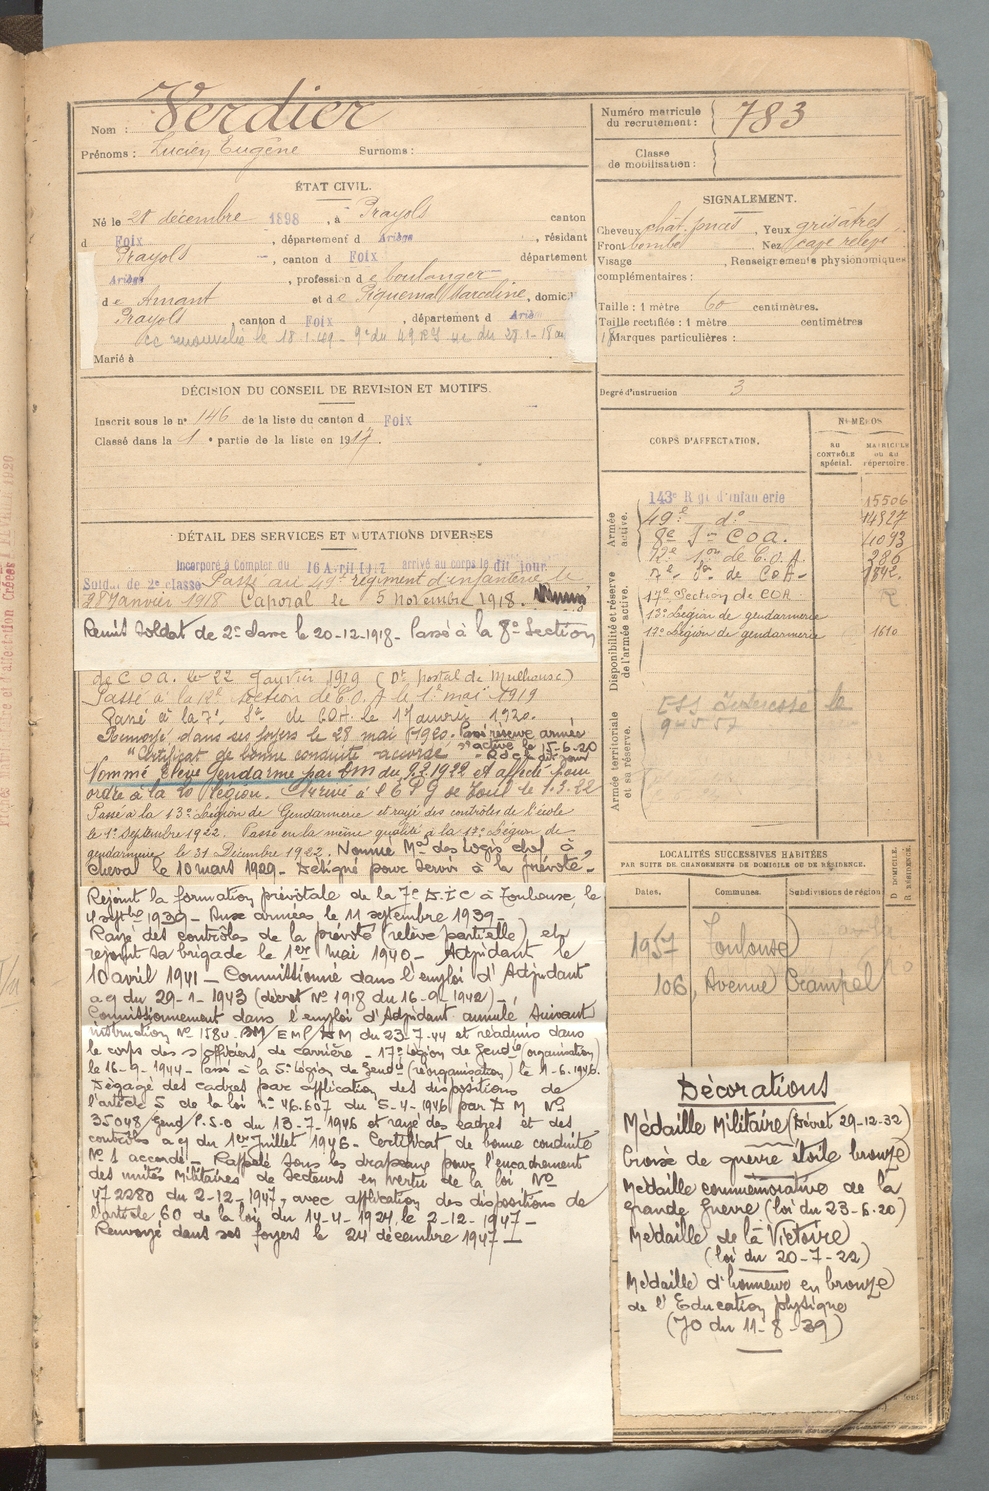 Nom : Verdier
Prénoms : Lucien Eugène Surnoms :
ÉTAT CIVIL.
Né le 28 décembre 1898, à Prayols canton
d Foix, département d Ariège, résidant
Prayols, canton d Foix département
Ariège, profession de boulanger
de Amant et de Piquemal Marceline, domicil
Prayols canton d Foix, département d Ariè
renouvelée le 18 1.49
Marié à
DÉCISION DU CONSEIL DE REVISION ET MOTIFS.
Inscrit sous le n° 146 de la liste du canton d Foix
Classé dans la 1e partie de la liste en 1917.
DÉTAIL DES SERVICES ET MUTATIONS DIVERSES
Incorporé à compter du 16 Avril 1917 arrivé au corps le dit jour
Sold. de 2e classe Passé au 49e régiment d'infanterie le
28 Janvier 1918 Caporal le 5 novembre 1918.
Remis Soldat de 2e classe le 20-12-1918 - Passé à la 8e Section
de C O A. le 22 Janvier 1919 (Dt postal de Mulhouse)
Passé à la 12e Section de C.O.A le 1er mai 1919
Passé à la 7e Son de COA. le 1 Janvier 1920.
Renvoyé dans ses foyers le 28 mai 1920. Passé réserve armée
active le 15-6-20
"Certificat de bonne conduite accordé"
Nommé Elève Gendarme par DM du 9.2.1922 et affecté pour
ordre à la 20 Légion. Arrivé à l'E P G de Toul le 1.3.22
Passé à la 13e Légion de Gendarmerie et rayé des contrôles de l'école
le 1er Septembre 1922. Passé en la même qualité à la 17e Légion de
gendarmerie le 31 Décembre 1922. Nommé Mal des Logis chef à
cheval le 10 mars 1929 - Désigné pour servir à la prévôté -
Rejoint la formation prévôtale de la 7e D.I.C à Toulouse, le
4 septbre 1939 - Aux armées le 11 septembre 1939 -
Rayé des contrôles de la prévôté (relève partielle) et
rejoint sa brigade le 1er mai 1940 - Adjudant le
10 avril 1941 - Commissionné dans l'emploi d'Adjudant
a9 du 29-1-1943 (décret N° 1918 du 16-9-1942) -
Commissionnement dans l'emploi d'Adjudant annulé suivant
instruction N° 1580. DM/EMP/DM du 23-7-44 et réadmis dans
le corps des s/officiers de carrière - 17e Légion de Gendie (organisation)
le 16-9-1944 - Passé à la 5e Légion de Gendie (réorganisation) le 1-6-1946.
Dégagé des cadres par application des dispositions de
l'article 5 de la loi n° 46.607 du 5-4-1946 par D M N°
35048/Gend/P.S.O du 13-7-1946 et rayé des cadres et des
contrôles a9 du 1er Juillet 1946 - Certificat de bonne conduite
N° 1 accordé - Rappelé sous les drapeaux pour l'encadrement
des unités Militaires de Secteurs en vertu de la loi N°
47 2280 du 2-12-1947, avec application des dispositions de
l'article 60 de la loi du 14-4-1924, le 2-12-1947 -
Renvoyé dans ses foyers le 24 décembre 1947 -
Numéro matricule
du recrutement : 783
Classe
de mobilisation :
SIGNALEMENT.
Cheveux chât. foncés, Yeux grisâtres
Front bombé Nez cave relevé
Visage, Renseignements physionomiques
complémentaires :
Taille : 1 mètre 60 centimètres.
Taille rectifiée : 1 mètre centimètres
Marques particulières :
Degré d'instruction 3
CORPS D'AFFECTATION.
NUMÉROS
AU CONTRÔLE spécial.
MATRICULE ou au répertoire.
Armée active.
143e Rgt d'Infanterie 15506
49e do 14827
8e Son C O A. 4093
12e Son de C.O.A. 286
7e Son de C O A 1892.
Disponibilité et réserve de l'armée active.
17e Section de COA
13e Légion de gendarmerie
17e Légion de gendarmerie 1610
Armée territoriale et sa réserve.
LOCALITÉS SUCCESSIVES HABITÉES
PAR SUITE DE CHANGEMENTS DE DOMICILE OU DE RÉSIDENCE.
Dates. Communes. Subdivisions de région
D. DOMICILE. R. RÉSIDENCE.
1957 Toulouse
106, Avenue Crampel
Décorations
Médaille Militaire (Décret 29-12-32)
Croix de guerre étoile bronze
Médaille commémorative de la
grande Guerre (loi du 23-6-20)
Médaille de la Victoire
(loi du 20-7-22)
Médaille d'honneur en bronze
de l'Education physique
(JO du 11-8-39)